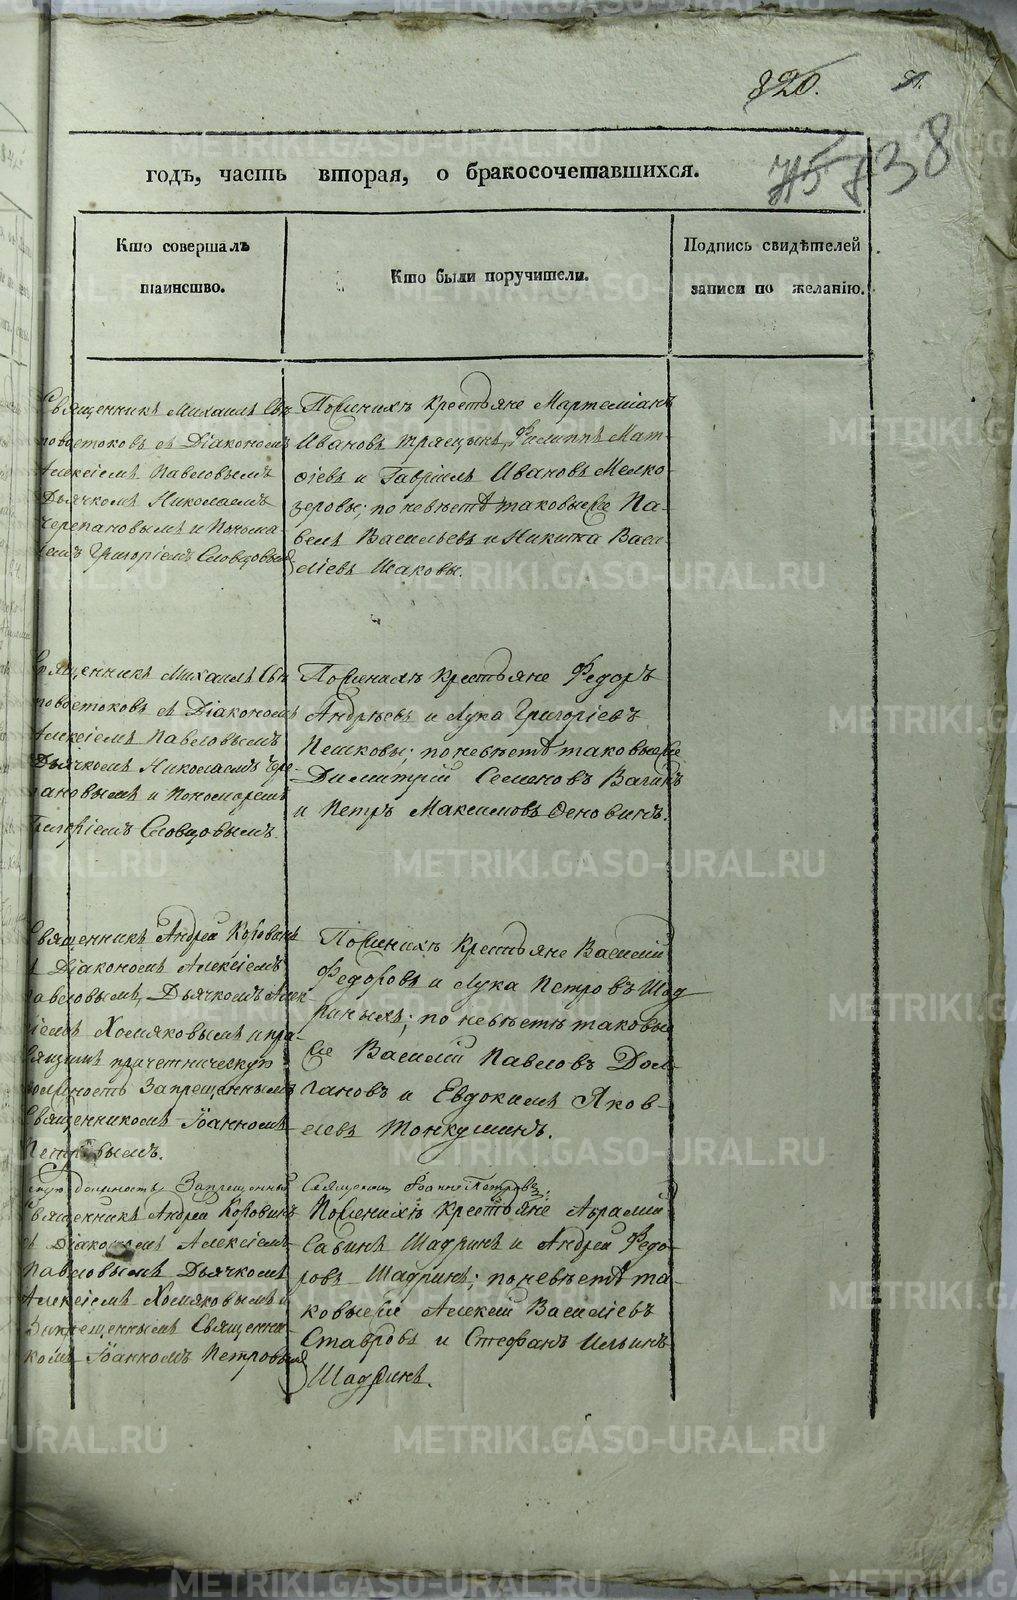 820.
838
годъ, часть вторая, о бракосочетавшихся.
Кто совершалъ
таинство.
Кто были поручители.
Подпись свидѣтелей
записи по желанію.
Священникъ Михаилъ Свѣ
товостоковъ съ Діакономъ
Алексіемъ Павловымъ
Дьячкомъ Николаемъ
Черепановымъ и Понома
ремъ Григоріемъ Словцовымъ
По женихѣ крестьяне Мартеміанъ
Ивановъ Трясцынъ, Филиппъ Мат-
ѳіевъ и Гавріилъ Ивановъ Мелко-
зеровы; по невѣстѣ таковые же Па-
велъ Васильевъ и Никита Васи
ліевъ Исаковы.
Священникъ Михаилъ Свѣ
товостоковъ съ Діакономъ
Алексіемъ Павловымъ
Дьячкомъ Николаемъ Чере-
пановымъ и Пономаремъ
Григоріемъ Словцовымъ.
По женихѣ крестьяне Федоръ
Андрѣевъ и Лука Григоріевъ
Пешковы; по невѣстѣ таковые же
Димитрій Семеновъ Вагинъ
и Петръ Максимовъ Ѳеновинъ.
Священникъ Андрей Коровинъ
съ Діакономъ Алексіемъ
Павловымъ, Дьячкомъ Алек-
сіемъ Хомяковымъ и пра-
вящимъ причетническую
должность Запрещеннымъ
Священникомъ Іоанномъ
Петровымъ.
По женихѣ крестьяне Василій
Федоровъ и Лука Петровъ Шад
рины; по невѣстѣ таковые
же Василій Павловъ Дол-
гановъ и Евдокимъ Яков-
левъ Тонкушинъ.
скую должность Запрещенный Священникъ Іоаннъ Петровъ.
Священникъ Андрей Коровинъ
съ Діакономъ Алексіемъ
Павловымъ Дьячкомъ
Алексіемъ Хомяковымъ и
Запрещеннымъ Священни-
комъ Іоанномъ Петровымъ
По женихѣ крестьяне Аврамій
Савинъ Шадринъ и Андрей Федо-
ровъ Шадринъ; по невѣстѣ та-
ковые же Алексій Василіевъ
Ставровъ и Стефанъ Ильинъ
Шадринъ.
METRIKI.GASO-URAL.RU